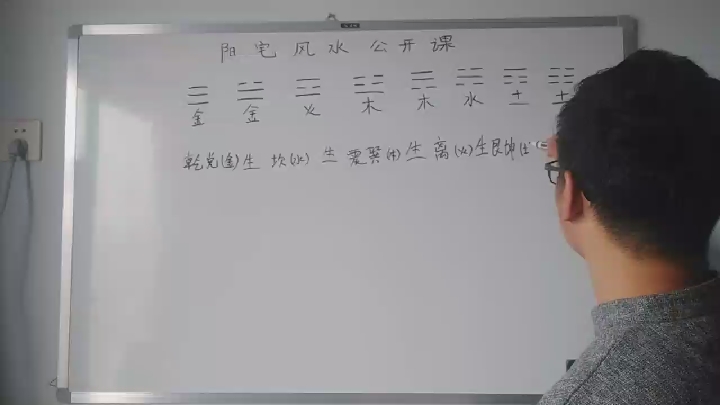 阳宅风水公开课
☰ ☱ ☲ ☳ ☴ ☵ ☶ ☷
金 金 火 木 木 水 土 土
乾兑(金)生 坎(水) 生 震巽(木) 生 离(火)生艮坤(土)